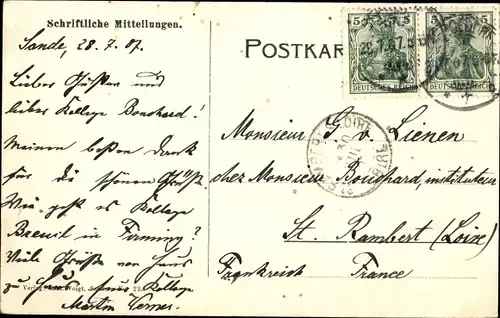 Schriftliche Mitteilungen.
Sande, 28.7.07.
Lieber Thüsten und
lieber Kollege Bouchard!
Meinen besten Dank
für die schönen Grüße.
Wie geht es Kollege
Breuil in Firminy?
Viele Grüße von Haus
zu Haus Kollege
Martin Verner.
POSTKAR
5 5
DEUTSCHES REICH DEUTSCHES REICH
Monsieur S. v. Lienen
chez Monsieur Bouchard, instituteur
St. Rambert (Loire)
Frankreich France